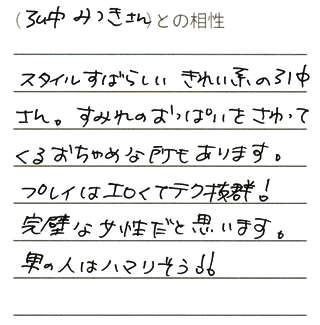 (弘中 みつきさん)との相性
スタイルすばらしい きれい系の弘中
さん。すみれのおっぱいをさわって
くるおちゃめな所もあります。
プレイはエロくてテク抜群!
完璧な女性だと思います。
男の人はハマりそう!!